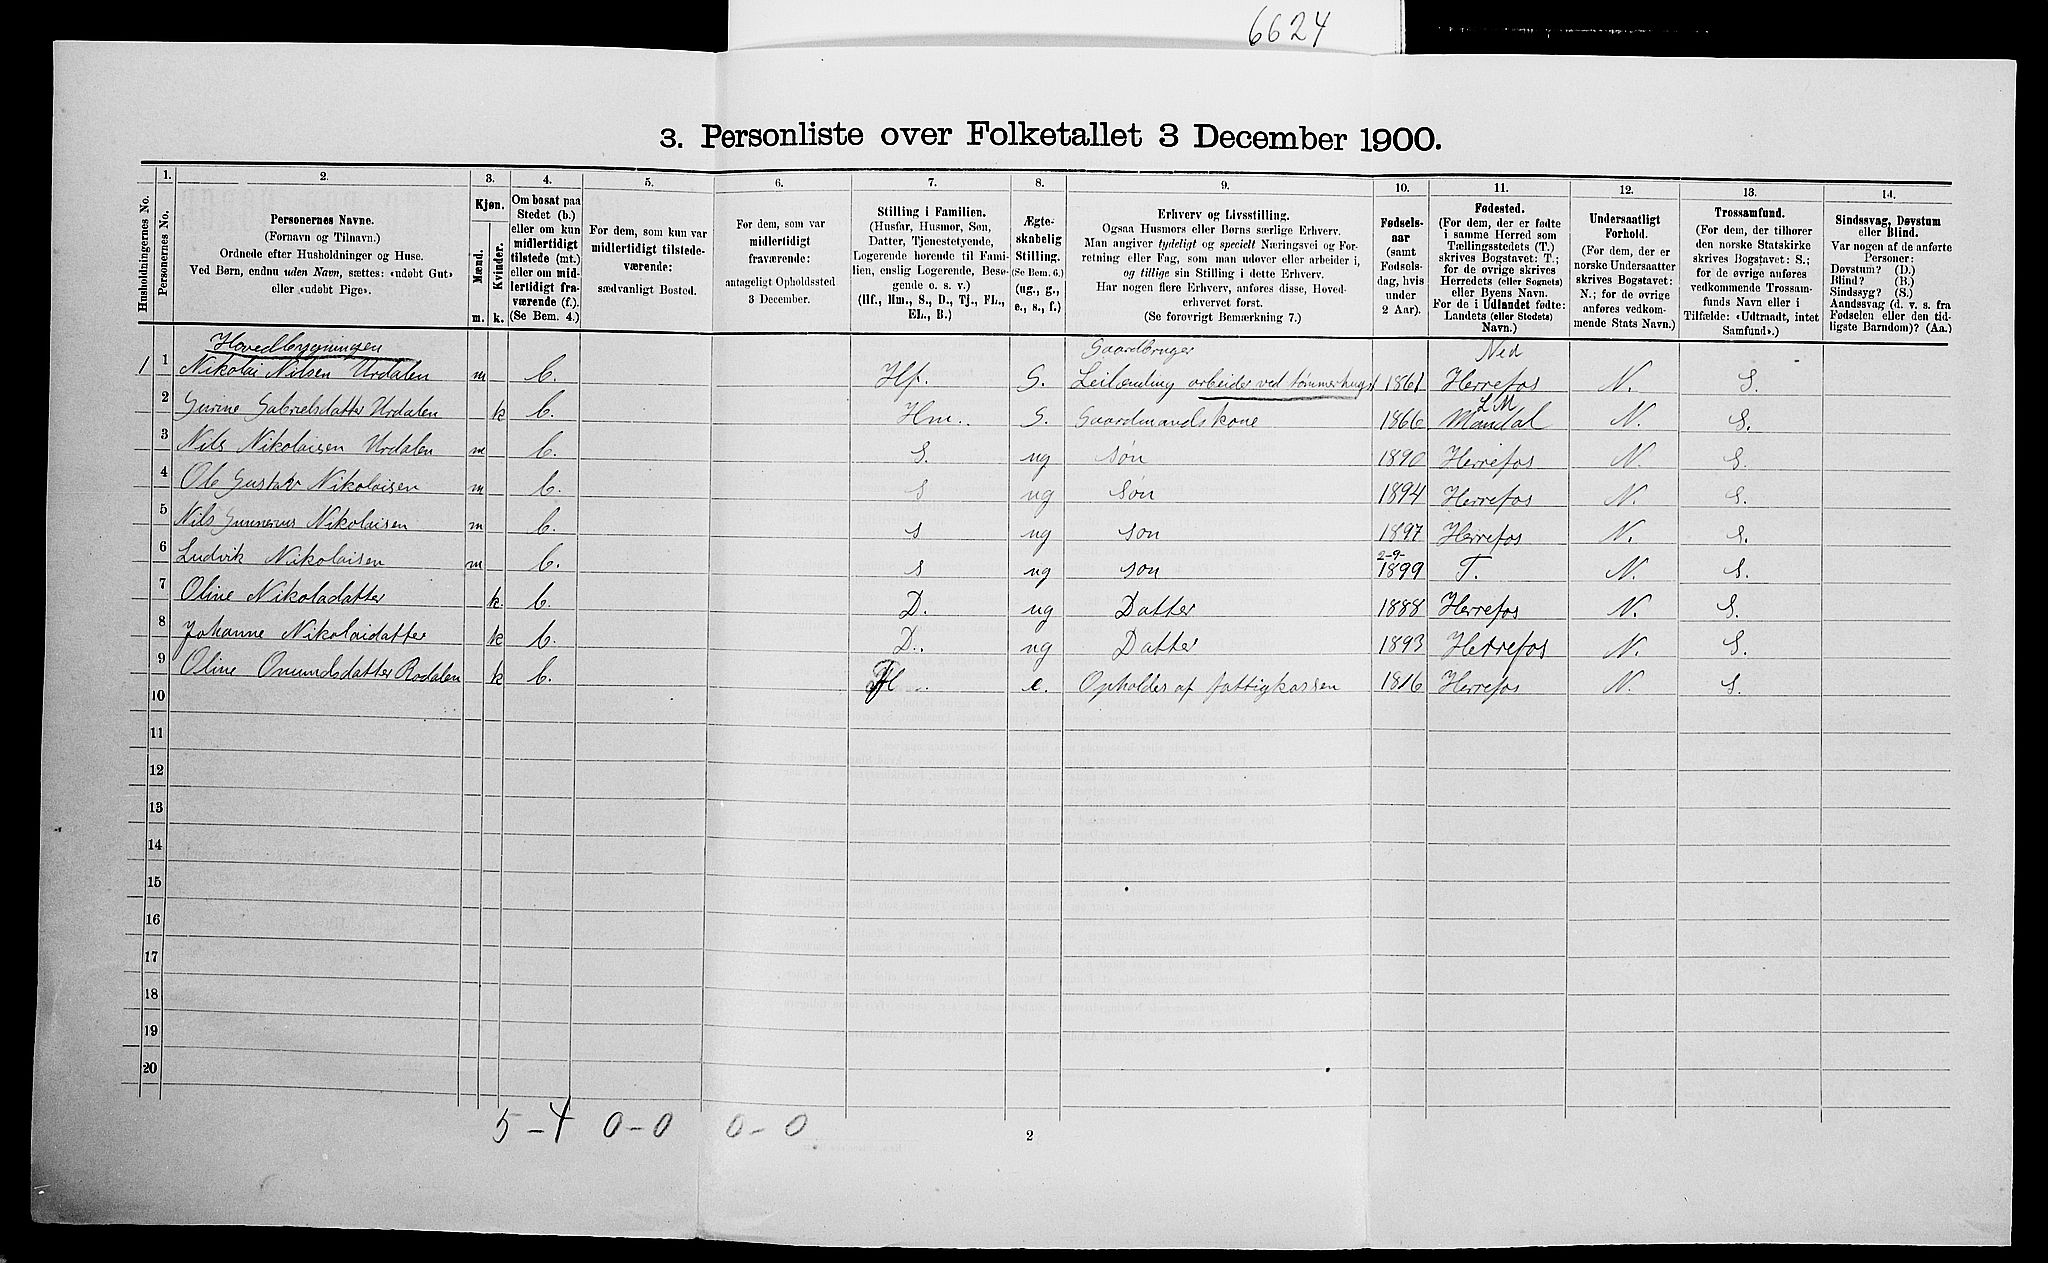 6624
3. Personliste over Folketallet 3 December 1900.
Husholdningernes No.
1.
Personernes No.
2.
Personernes Navne.
(Fornavn og Tilnavn.)
Ordnede efter Husholdninger og Huse.
Ved Børn, endnu uden Navn, sættes: «udøbt Gut»
eller «udøbt Pige».
3.
Kjøn.
Mænd.
Kvinder.
m.
k.
4.
Om bosat paa
Stedet (b.)
eller om kun
midlertidigt
tilstede (mt.)
eller om mid-
lertidigt fra-
værende (f.).
(Se Bem. 4.)
5.
For dem, som kun var
midlertidigt tilstede-
værende:
sædvanligt Bosted.
6.
For dem, som var
midlertidigt
fraværende:
antageligt Opholdssted
3 December.
7.
Stilling i Familien.
(Husfar, Husmor, Søn,
Datter, Tjenestetyende,
Logerende hørende til Fami-
lien, enslig Logerende, Besø-
gende o. s. v.)
(Hf., Hm., S., D., Tj., FL.,
EL., B.)
8.
Ægte-
skabelig
Stilling.
(Se Bem. 6.)
(ug., g.,
e., s., f.)
9.
Erhverv og Livsstilling.
Ogsaa Husmors eller Børns særlige Erhverv.
Man angiver tydeligt og specielt Næringsvei og For-
retning eller Fag, som man udøver eller arbeider i,
og tillige sin Stilling i dette Erhverv.
Har nogen flere Erhverv, anføres disse, Hoved-
erhvervet først.
(Se forøvrigt Bemærkning 7.)
10.
Fødsels-
aar
(samt
Fødsels-
dag, hvis
under
2 Aar).
11.
Fødested.
(For dem, der er fødte
i samme Herred som
Tællingsstedets (T.)
skrives Bogstavet: T.;
for de øvrige skrives
Herredets (eller Sognets)
eller Byens Navn.
For de i Udlandet fødte:
Landets (eller Stedets)
Navn.)
12.
Undersaatligt
Forhold.
(For dem, der er
norske Undersaatter
skrives Bogstavet:
N.; for de øvrige
anføres vedkom-
mende Stats Navn.)
13.
Trossamfund.
(For dem, der tilhører
den norske Statskirke
skrives Bogstavet: S.;
for de øvrige anføres
vedkommende Trossam-
funds Navn eller i
Tilfælde: «Udtraadt, intet
Samfund».)
14.
Sindssvag, Døvstum
eller Blind.
Var nogen af de anførte
Personer:
Døvstum? (D.)
Blind? (B.)
Sindssyg? (S.)
Aandssvag (d. v. s. fra
Fødselen eller den tid-
ligste Barndom)? (Aa.)
Hovedbygningen Gaardbruger Ned
1 1 Nikolai Nilsen Urdalen m b. Hf. G. Leilænding arbeider ved tømmerhugst 1861 Herrefos N. S.
2 Gurine Gabrielsdatter Urdalen k b. Hm. G. Gaardmandskone 1866 LM Mandal N. S.
3 Nils Nikolaisen Urdalen m b. S. ug søn 1890 Herrefos N. S.
4 Ole Gustav Nikolaisen m b. S ug søn 1894 Herrefos N. S.
5 Nils Gunnerus Nikolaisen m b. s ug søn 1897 Herrefos N. S.
6 Ludvik Nikolaisen m b. s ug søn 2-9- 1899 T. N. S.
7 Oline Nikoladatter k. b. D. ug Datter 1888 Herrefos N. S.
8 Johanne Nikolaidatter k b. D. ug Datter 1893 Herrefos N. S.
9 Oline Omundsdatter Rodalen k b. e. Opholdes af fattigkassen 1816 Herrefos N. S.
10
11
12
13
14
15
16
17
18
19
20
5-4 0-0 0-0
2